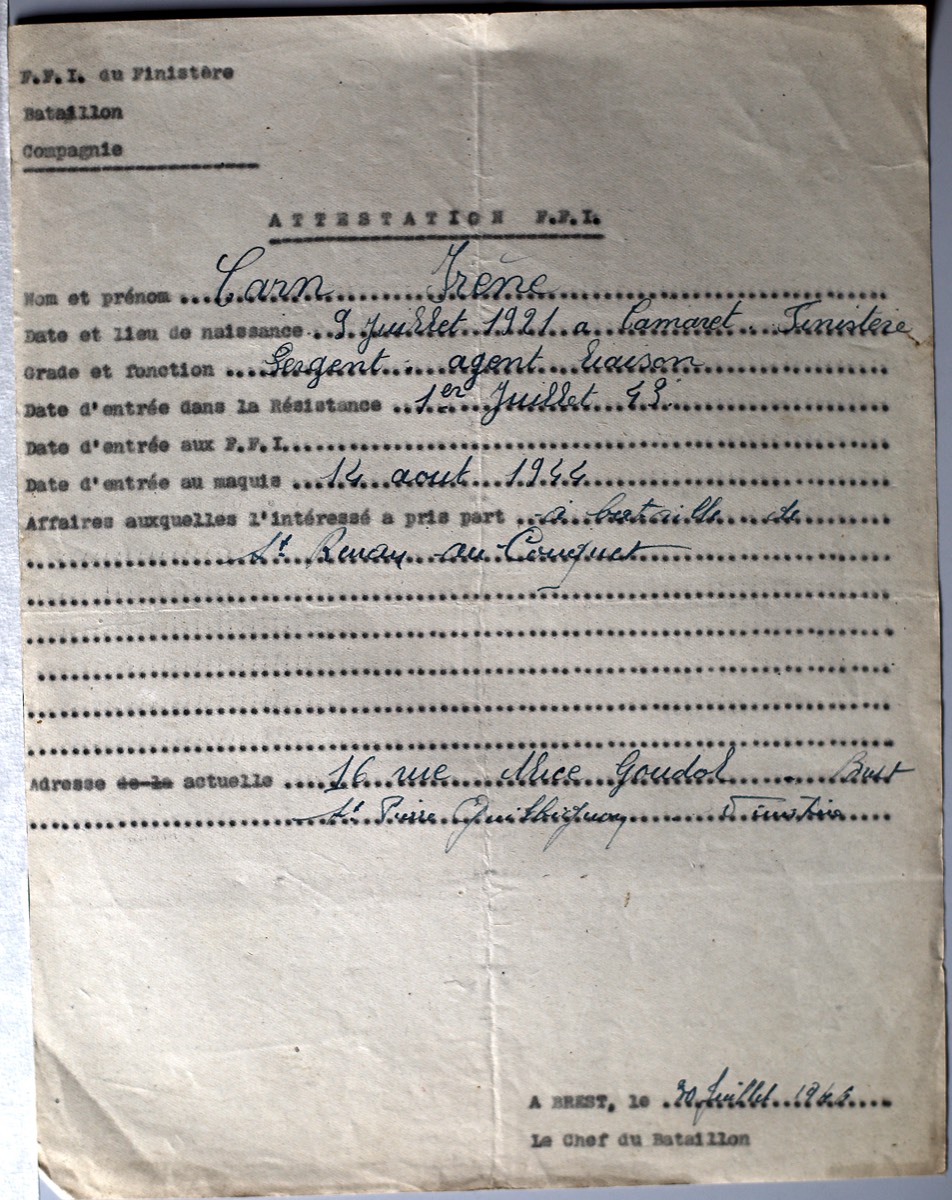 F.F.I. du Finistère
Bataillon
Compagnie
ATTESTATION F.F.I.
Nom et prénom ... Carn Irène
Date et lieu de naissance .. 9 Juillet 1921 a Camaret . Finistère
Grade et fonction .... Sergent . agent liaison
Date d'entrée dans la Résistance .. 1er Juillet 43.
Date d'entrée aux F.F.I.
Date d'entrée au maquis ... 14 aout 1944
Affaires auxquelles l'intéressé a pris part .. à bataille de
St Renan au Conquet
Adresse de la actuelle .... 16 rue Alice Goudol . Brest
St Pierre Quilbignon Finistère
A BREST, le . Juillet 1945
Le Chef du Bataillon